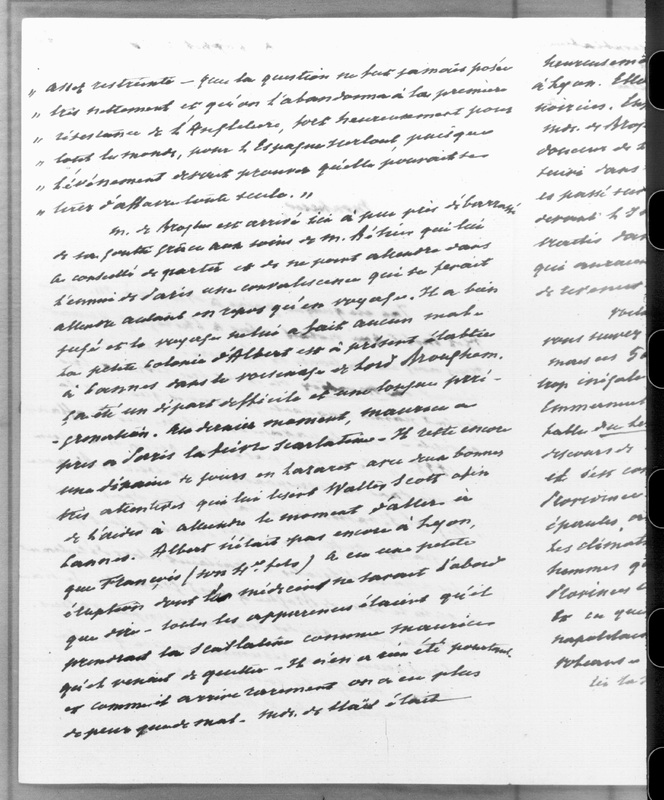 „ assez restreinte – que la question ne fut jamais posée
„ très nettement et qu'on l'abandonna à la première
„ résistance de l'Angleterre, fort heureusement pour
„ tout le monde, pour l'Espagne surtout puisque
„ l'événement devait prouver qu'elle pouvait se
„ tirer d'affaire toute seule. „
M. de Broglie est arrivé ici à peu près débarrassé
de sa goutte grâce aux soins de M. qui lui
a conseillé de partir et de ne point attendre dans
l'ennui de Paris une convalescence qui se ferait
attendre autant en repos qu'en voyage. Il a bien
jugé et le voyage ne lui a fait aucun mal.
La petite colonie d'Albert est à présent établie
à Cannes dans le voisinage de Lord Brougham.
Ça été un départ difficile et une longue péré-
grination. Au dernier moment, Maurice a
pris à Paris la fièvre scarlatine. Il reste encore
une dizaine de jours en lazaret avec deux bonnes
très attentives qui lui lisent Walter Scott afin
de l'aider à attendre le moment d'aller à
Cannes. Albert n'était pas encore à Lyon,
que François (son 4me fils) a eu une petite
éruption dont les médecins ne savaient d'abord
que dire – toutes les apparences étaient qu'il
prendrait la scarlatine comme Maurice
qu'il venait de quitter – Il n'en a rien été pourtant
et comme il arrive rarement on a eu plus
de peur que de mal. Md. de Staël était
à Lyon. Elle
noircies.
md. de Brog
douceur de
suivi dans
es passé sur
devant le
qui auraient
de revenir.
vous
mais es
trop inégale
discours de
et s'est con
Province.
épaules,
les climats
hommes q
et ce que
napolitain